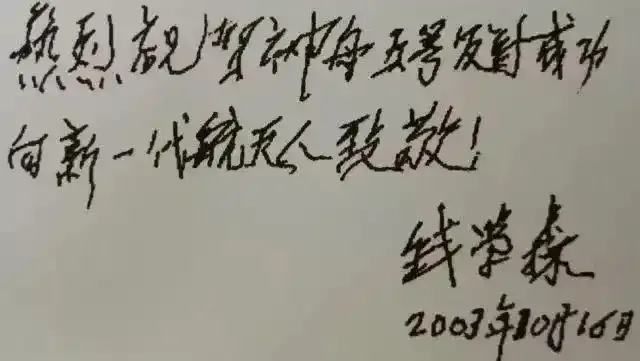 热烈祝贺神舟五号发射成功
向新一代航天人致敬！
钱学森
2003年10月16日